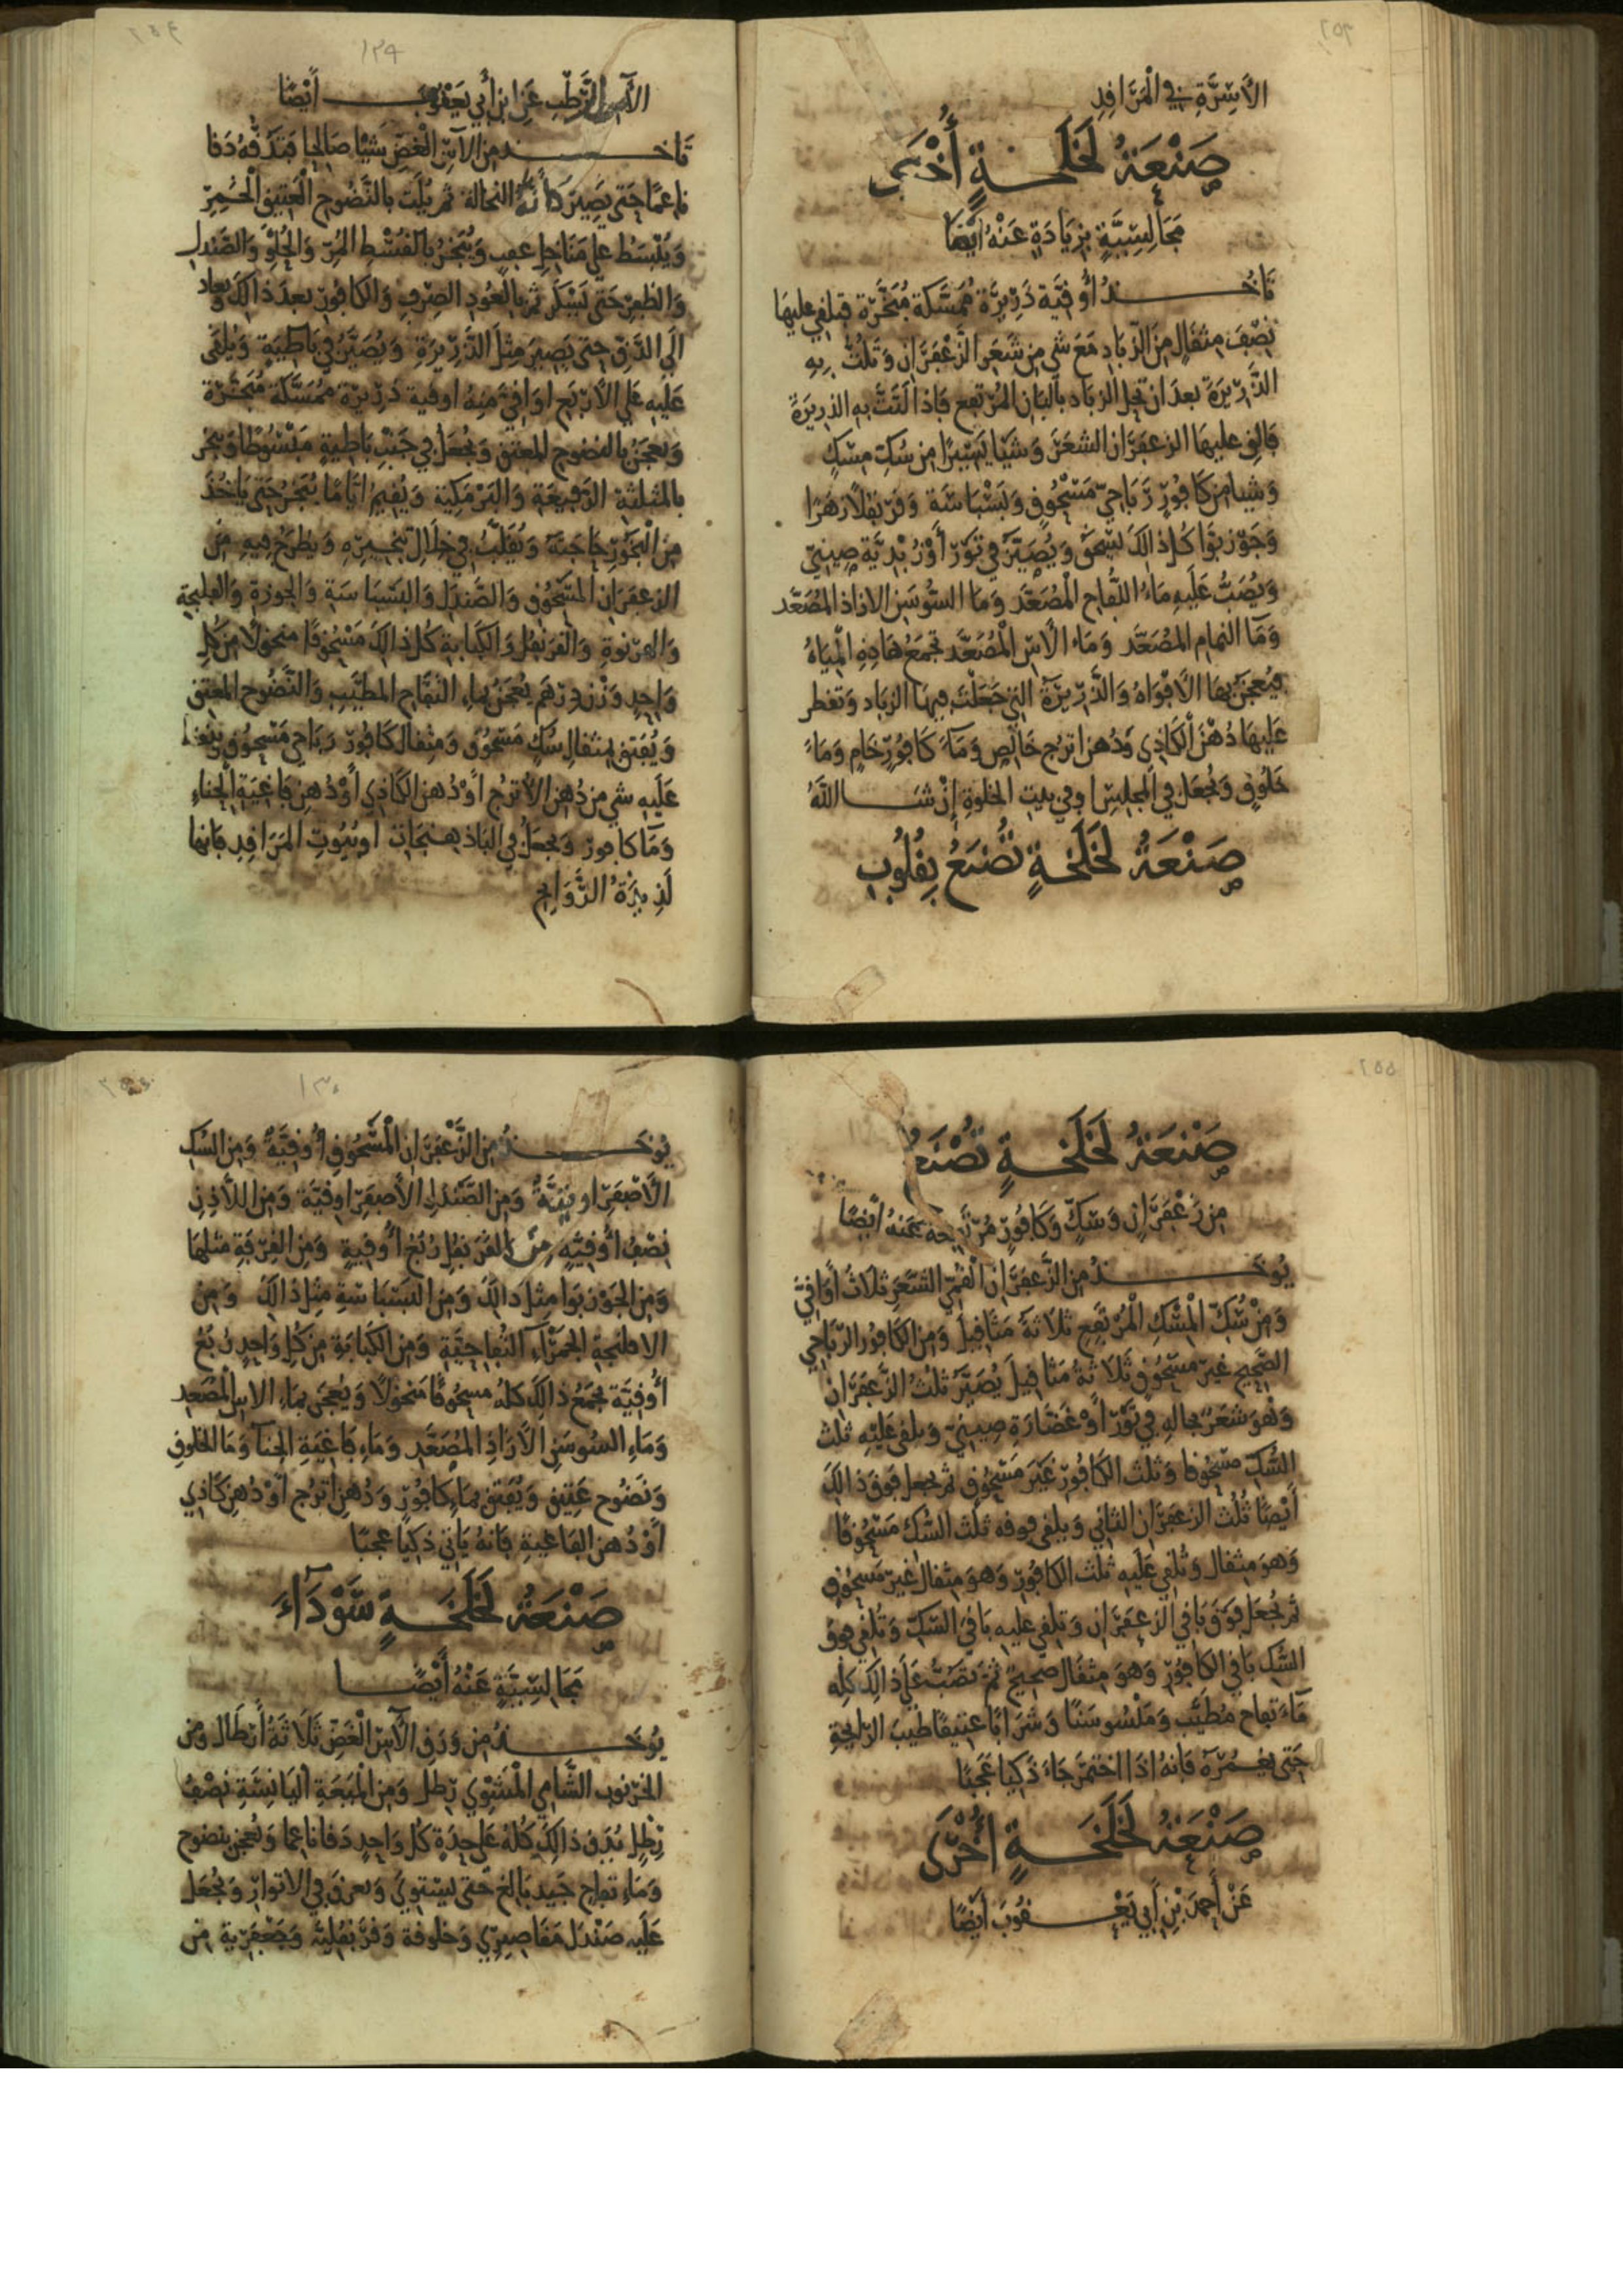 ٢٥٣
الأَسِرَّةِ في الْمَرَاقِدِ
صَنْعَةُ لَخْلَخَةٍ أُخْرَى
مَجَالِسِيَّةٍ بِزِيَادَةٍ عَنْهُ أَيْضًا
تَاخُذُ أُوقِيَّة ذَرِيرَة مُمَسَّكة مُبَخَّرَة فتلقي عليها
نِصْفَ مِثقَالٍ مِنَ الزَّبَادِ مَعَ شي مِن شَعَرِ الزَّعْفَرَانِ وَتَلُتُّ بِهِ
الذَّرِيرَةَ بعدَ ان تحل الزباد بالبَانِ المُرْتفِع فَإذا التَتَّ به الذريرَة
فَالقِ عليهَا الزعفَرَان الشعَرَ وَشَيْا يَسِيْرًا مِن سُكِّ مِسْكٍ
وَشيا من كَافُورٍ رَبَاحِيّ مَسْحُوقٍ وَبَسْبَاسَة وَقَرَنفُلاً زهَرًا
وَجَوْزبَوَّا كُلُّ ذالِكَ يُسْحَقُ وَيُصَيَّرُ في تَوْرٍ أَوْ زُبْدِيَّة صِينِيّ
وَيُصَبُّ عَلَيهِ مَاءُ التُّفَّاحِ الْمُصَعَّد وَمَا السُّوسَنِ الازاذ المُصَعَّد
وَمَا النمام المُصَعَّد وَمَاء الْآسِ الْمُصَعَّد تجمَعُ هَاذِهِ الْمِيَاهُ
فيُعجَنُ بهَا الْأَفْوَاهُ وَالذَّرِيْرَةُ التي جَعَلْتَ فِيهَا الزباد وَتقطر
عَليهَا دُهْنَ الْكَاذِي وَدُهنَ اترُج خَالِصٍ وَمَاءَ كَافُورٍ خَامٍ وَمَاءَ
خَلُوقٍ وَتُجْعَلُ في الْمَجلِسِ او في بيتِ الخلوةِ إِنْ شَا اللهُ
صَنْعَةُ لَخْلَخَةٍ تُصْنَعُ بِقُلُوبِ
٢٥٤
١٢٩
الْآسِ الرَّطْبِ عَن ابن أَبي يَعْقُوبَ أَيْضًا
تَاخُذ من الْآسِ الْغَضِّ شَيْا صَالِحا فَتَدُقُّهُ دَقا
ناعمًا حَتى يَصِيرَ كَأَنَّهُ النخالة ثم يُلَتّ بالنَّضُوح الْعَتِيقِ الْخَمِر
وَيُبْسَط على مَنَاخِل عَقِب وَيُبَخَّرُ بالقُسْطِ المُرّ وَالحُلْوِ وَالصَّندل
وَالظفِرْ حَتَى يَسْكر ثم بالعُودِ الصِّرْفِ وَالكافُور بعدَ ذالك ويعاد
إلَى الدَّقِ حتى يَصِيرَ مِثلَ الذَّرِيْرَةِ وَيُصَيَّرُ في بَاطِيَةٍ وَيُلقَى
عَلَيهِ عَلَى الأَرْبَعِ اوَاقِيَّ مِنهُ اوقيَة ذَرِيْرَة مُمَسَّكَة مُبَخَّرَة
وَيعجَنُ بالنضوح المُعتق وَيُجْعَلُ في جَنْبِ بَاطِيةٍ مَبْسُوطًا وَيبخر
بالمثلثة الرَّفِيعَةِ وَالبَرْمَكِيَةِ وَيُقِيمُ اَيَّامًا يُبَخَّرُ حَتى يَاخُذَ
مِنَ الْبَخُوْرِ حَاجَتَهُ وَيُقَلَّبُ في خِلَالِ تَبْخِيرِهِ وَيطرَحُ فِيهِ مِنَ
الزعفَرَان المسحُوق وَالصَّنْدَلِ وَالبَسْبَاسَة وَالجوزة وَالفلَنجة
وَالهرْنوة وَالقَرَنفُل وَالكبَابة كُل ذالك مَسْحُوقًا منخولًا مِن كل
وَاحِدٍ وَزْن دِرْهَم يُعجَنُ بمَاءِ التُفَّاح المطيَّب وَالنَّضُوح المعتق
وَيُفتق بمثقالِ سُكٍّ مَسْحُوْق وَمِثقَال كَافُورٍ رَبَاحي مَسْحُوق
عَلَيهِ شي من دُهْنِ الْأُترُج أَوْ دُهن الكَاذي أَوْ دُهن فَاغِيَةِ الْحِنّاءِ
وَمَا كافورٍ وَيجعَلُ في البَاذهنجَات او بُيُوتِ المَرَاقِدِ فَانها
لَذِيذَةُ الرَّوَايِح
٢٥٥
صَنْعَةُ لَخْلَخَةٍ تُصْنَعُ
مِن زَعْفَرَانٍ وَسُكٍّ وَكَافُورٍ عَنهُ أَيضًا
يُوخَذُ مِن الزَّعفَرَان الْقُمِّيِّ الشَّعَرِ ثَلَاثُ أَوَاقِيَّ
وَمِنْ سُكِّ الْمِسْكِ الْمُرْتَفِعِ ثَلَاثَةُ مَثَاقِيلَ وَمِن الكَافُور الرَّبَاحِي
الصَّحِيح غير مَسْحُوق ثَلَاثَةُ مَثاقيلَ يُصَيَّرُ ثلثُ الزَّعفَرَان
وَهْوَ شَعَرٌ بحاله في تَوْرٍ أَوْ غَضَارَةِ صِينيّ وَيلقى عَلَيْهِ ثلث
السُّكِّ مسحُوقا وَثلث الكَافُور غَيرَ مَسْحُوق ثم يجعل فوق ذالكَ
أَيْضًا ثُلُث الزعفرَان الثاني وَيلقى فوقه ثلث السُّك مَسْحُوقًا
وَهوَ مِثقال وَتُلقي عَليه ثلثَ الكافُور وَهوَ مثقال غيرَ مَسحُوقٍ
ثم يُجعَل فَوقَ بَاقي الزعفَرَان وَتلقي عليه بَاقيَ السُّكِّ وَتُلقي فوق
السُّكِ بَاقي الكافُور وَهوَ مِثقَال صحِيحٌ ثمَّ تصُبُّ عَلَى ذالك كله
مَاءَ تفاح مُطَيَّب وَمَاسُوسَنًا وَشَرَابًا عتِيقًا طيبَ الرَّايحةِ
حَتى يغمُرَهُ فَإنهُ اذَا اختمَر جَاءَ ذَكيا عَجَبًا
صَنْعَةُ لَخْلَخَةٍ أُخْرَى
عَنْ أَحمدَ بْنِ أَبي يَعْقُوبَ أَيْضًا
١٣٠
يُوخَذُ مِن الزَّعْفَرَان الْمَسْحُوقِ أُوقِيَّةٌ وَمِن السُّكِ
الأَصْفَرِ اوقِيَّةٌ وَمِن الصَّنْدَلِ الأَصفَر اوقِيَّة وَمِن اللَّاذِن
نِصْفُ أُوقِيَّةٍ وَمِن القَرَنفل رُبْعُ أُوقِيةٍ وَمِن القِرْفَةِ مثلهَا
وَمِن الجوْزبوا مِثل ذالك وَمِن البَسْبَاسَةِ مثل ذالك وَمِنَ
الافلنجة الحمْرَاءِ التُّفاحِيَّةِ وَمِن الكَبَابَةِ مِن كُلِّ وَاحِدٍ رُبعُ
أُوقِيَّة يُجمَعُ ذالك كلهُ مسحُوقًا مَنخولًا وَيُعجن بمَاءِ الآسِ الْمُصَعدِ
وَمَاءِ السُوسَنِ الْأَزَاذِ المُصَعَّدِ وَمَاءِ فَاغِيَةِ الحِنا وَمَا الخلوقِ
وَنَضُوح عَتِيق وَيُفتق بمَاءِ كافُورٍ وَدُهنِ اترُج أَوْ دُهن كَاذي
أَوْ دُهن الفاغيةِ فَإنهُ يَاتي ذَكِيًّا عَجبًا
صَنْعَةُ لَخْلَخَةٍ سَوْدَاءَ
مَجَالِسِيَّةٍ عَنْهُ أَيْضًا
يُوخَذُ مِن وَرَقِ الْآسِ الْغَضِّ ثَلَاثَةُ أَرْطَال وَمِن
الخرْنوب الشَّامي الْمَشْوِي رِطل وَمِن الْمَيْعَةِ اليَابِسَةِ نِصْفُ
رِطلٍ يُدَق ذالكَ كُلُهُ عَلَى حِدَةٍ كُل وَاحِدٍ دَقا ناعما وَيُعجن بنضوح
وَمَاءِ تفاح جَيدٍ بَالغ حَتى يَستوي وَيعرق في الاتوارِ وَيُجْعَل
عَلَيهِ صَنْدَل مَقَاصِيرِي وَخلوقة وَقرَنفلية وَجعفَرية مِن